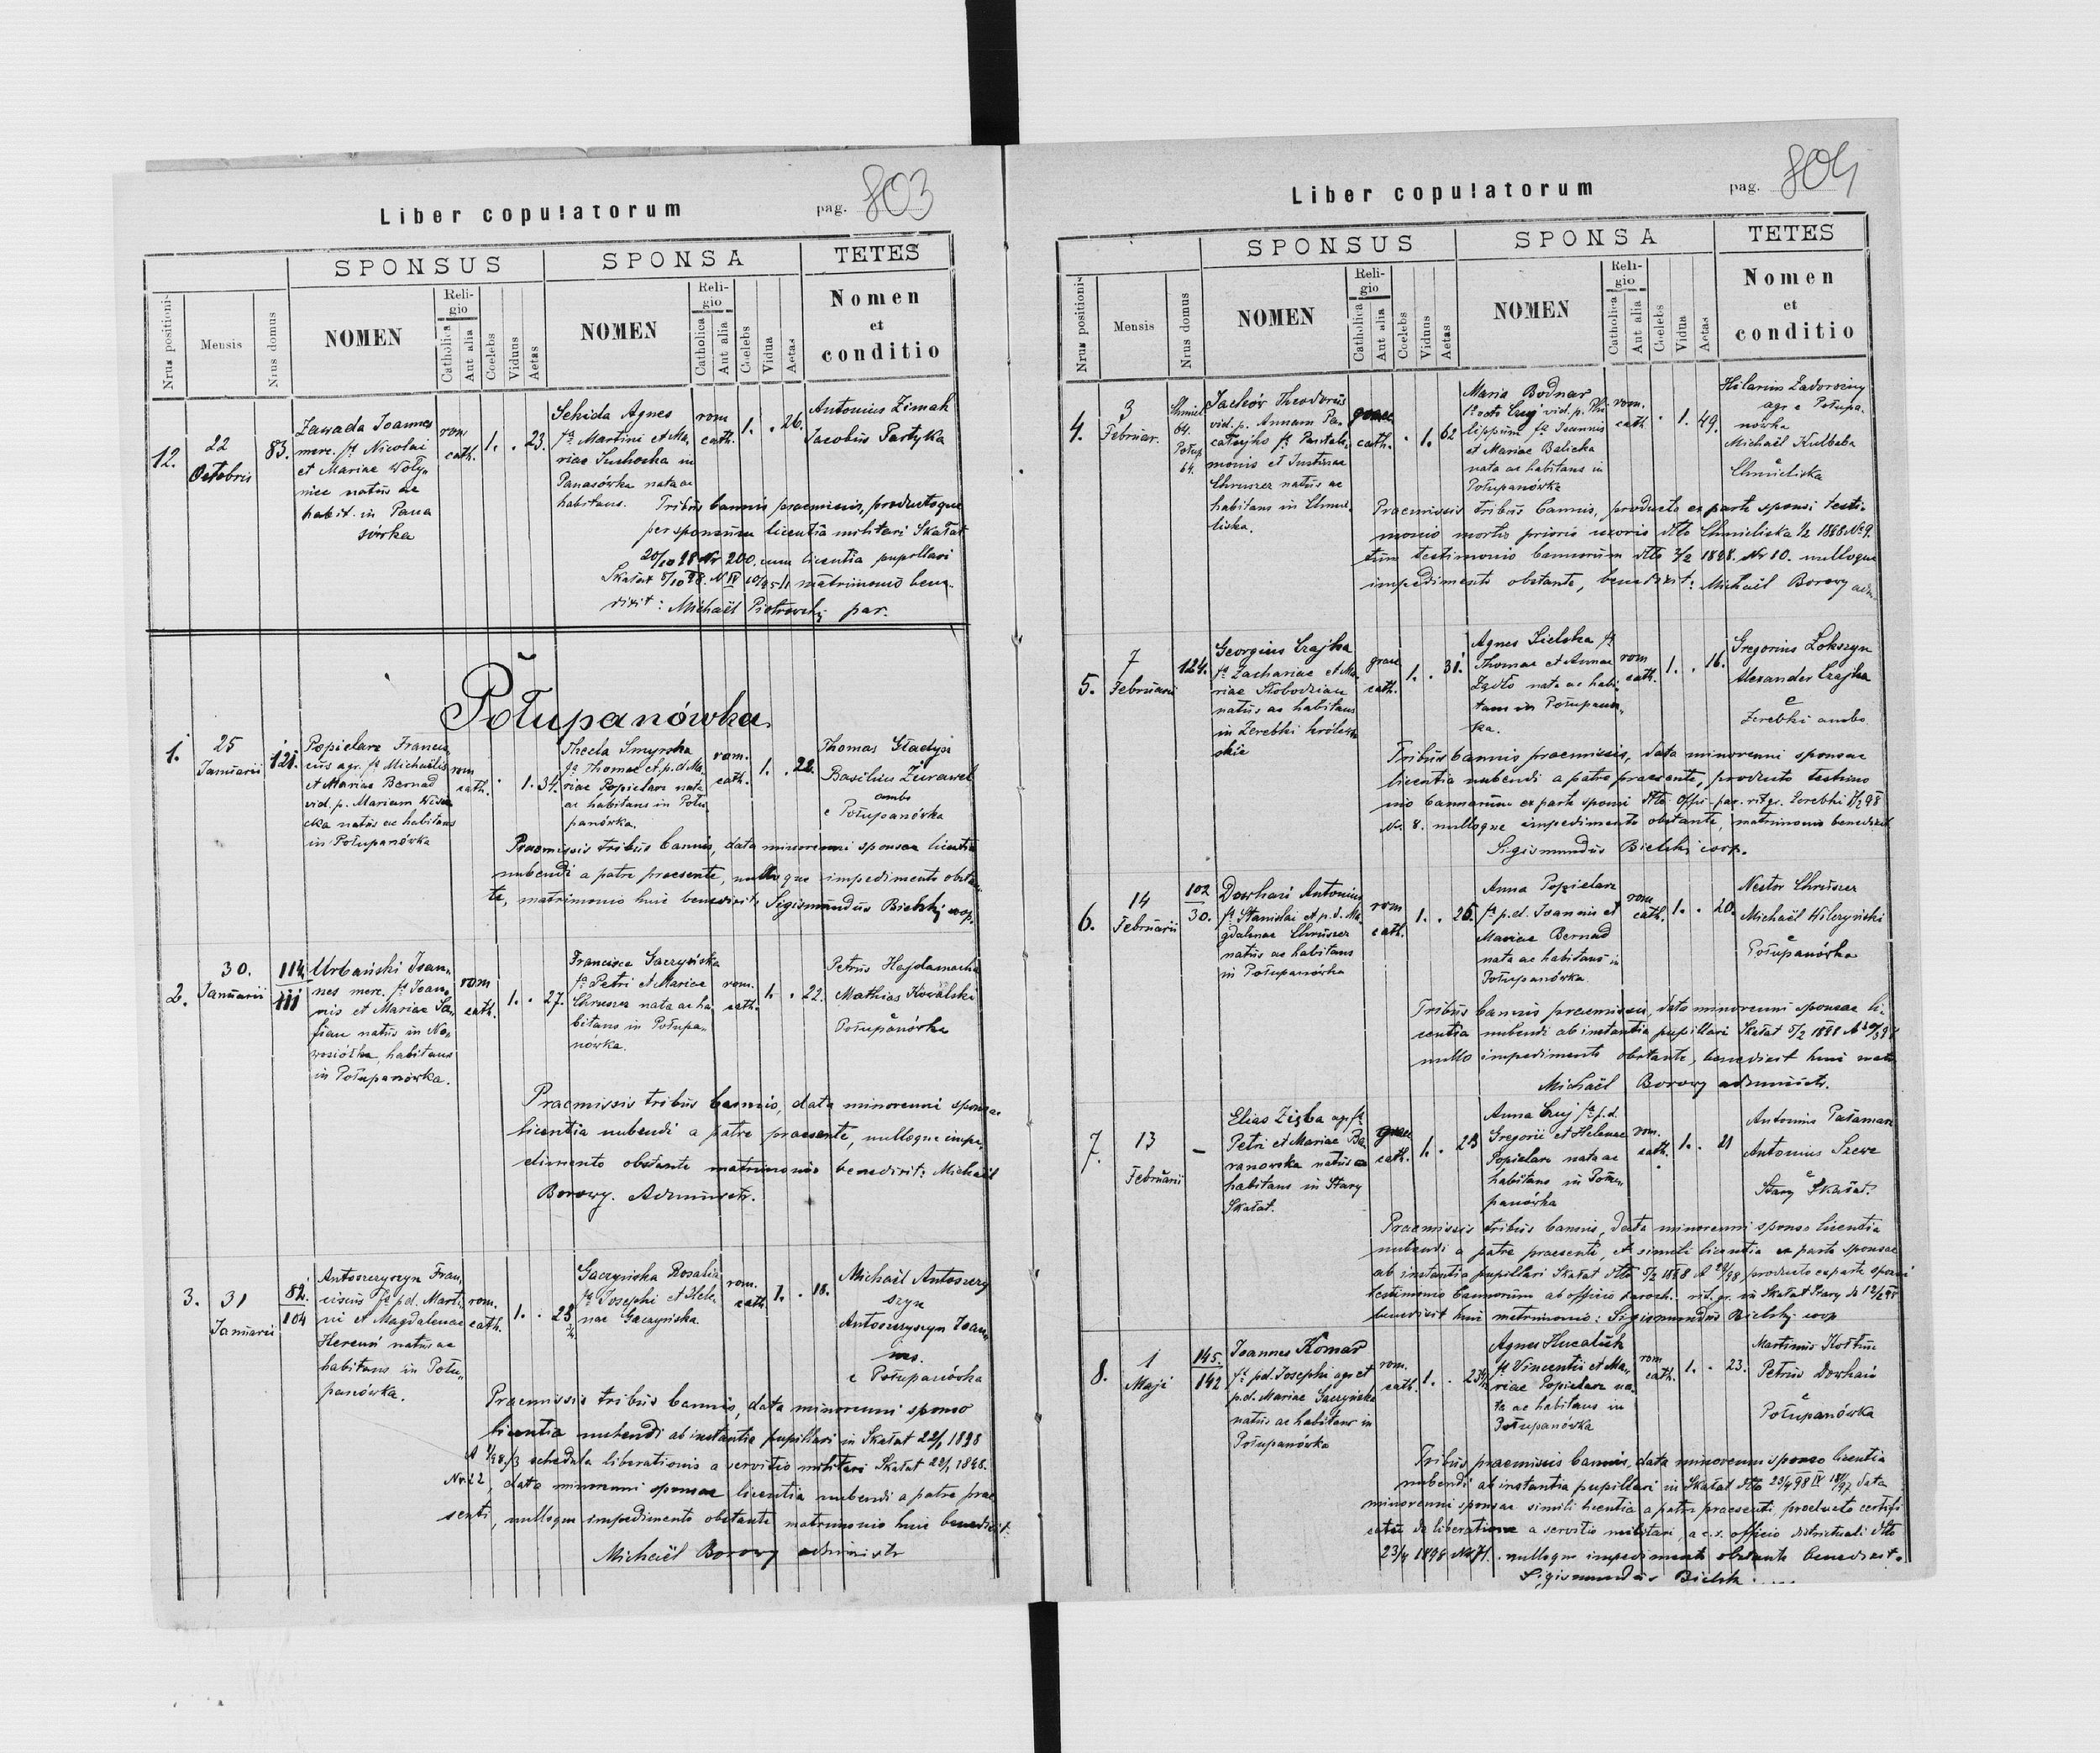 Liber copulatorum
pag. 803
SPONSUS
SPONSA
TETES
Nrus positionis
Mensis
Nrus domus
NOMEN
Religio
Catholica
Aut alia
Coelebs
Viduus
Aetas
NOMEN
Religio
Catholica
Aut alia
Coelebs
Vidua
Aetas
Nomen
et
conditio
12.
22
Octobris
83.
Zawada Joannes
merc. fs Nicolai
et Mariae Woły-
niec natus ac
habit. in Pana
sówka
rom
cath.
1. . 23.
Sekida Agnes
fa Martini et Ma-
riae Suchocka in
Panasówka nata ac
habitans.
rom
cath.
1. . 26.
Antonius Zimak
Jacobus Partyka
Tribus bannis praemissis, productoque
per sponsum licentia militari Skałat
20/10 98 Nr 200. cum licentia pupillari
matrimonio bene-
dixit: Michaël Piotrowski par.
Połupanówka
1.
25
Januarii
121.
Popielarz Francis-
cus agr. fs Michaëlis
et Mariae Bernad
vid. p. Mariam
natus ac habitans
in Połupanówka
rom
cath.
. 1. 34.
Thecla Smyrska
fa Thomae et p. d. Ma-
riae Popielarz nata
ac habitans in Połu-
panówka.
rom.
cath.
1. . 22.
Thomas Gładysz
Basilius Żurawel
ambo
e Połupanówka
Praemissis tribus bannis, data minorenni sponsae licentia
nubendi a patre praesente, nulloque impedimento obstan-
te, matrimonio huic benedixit: Sigismundus Bielski coop.
2.
30.
Januarii
114
111
Urbański Joan-
nes merc. fs Joan-
nis et Mariae
natus in No-
wosiółka, habitans
in Połupanówka.
rom
cath.
1. . 27.
Francisca Gaczyńska
fa Petri et Mariae
Chruszcz nata ac ha-
bitans in Połupa-
nówka.
rom.
cath.
1. . 22.
Petrus Hajdamacha
Mathias Kowalski
e
Połupanówka
Praemissis tribus bannis, data minorenni sponsae
licentia nubendi a patre praesente, nulloque impe-
dimento obstante matrimonio benedixit: Michaël
Borowy. Administr.
3.
31
Januarii
82.
104
Antoszczyszyn Fran-
ciscus fs p.d. Marti-
ni et Magdalenae
natus ac
habitans in Połu-
panówka.
rom.
cath.
1. . 23
Gaczyńska Rosalia
fa Josephi et Hele-
nae Gaczyńska.
rom.
cath.
1. . 18.
Michaël Antoszczy
szyn
Antoszczyszyn Joan-
nes.
e Połupanówka
Praemissis tribus bannis, data minorenni sponso
licentia nubendi ab instantia pupillari in Skałat 22/1 1898
schedula liberationis a servitio militari Skałat 22/1 1898.
Nr. 22, data minorenni sponsae licentia nubendi a patre prae-
senti, nulloque impedimento obstante matrimonio huic benedixit:
Michaël Borowy administr
Liber copulatorum
pag. 804
SPONSUS
SPONSA
TETES
Nrus positionis
Mensis
Nrus domus
NOMEN
Religio
Catholica
Aut alia
Coelebs
Viduus
Aetas
NOMEN
Religio
Catholica
Aut alia
Coelebs
Vidua
Aetas
Nomen
et
conditio
4.
3
Februar.
Chmiel
64.
Połup
64.
Jachów Theodorus
vid. p. Annam Pa-
fs Pantale-
monis et Justinae
Chruszcz natus ac
habitans in Chmie-
liska.
graec
cath.
. 1. 62
Maria Bodnar
1o voto Cuj vid. p. Phi-
lippum fa Joannis
et Mariae Balicka
nata ac habitans in
Połupanówka
rom.
cath
. 1. 49.
Hilarius Zadorożny
agr. e Połupa-
nówka
Michaël Kulbaba
e
Chmieliska
Praemissis tribus bannis, producto ex parte sponsi testi-
monio mortis prioris uxoris dtto Chmieliska 1/2 1898 No 9.
tum testimonio bannorum dtto 2/2 1898. Nr 10. nulloque
impedimento obstante, benedixit: Michaël Borowy adm.
5.
7
Februarii
124.
Georgius Czajka
fs Zachariae et Ma-
riae Słobodzian
natus ac habitans
in Zerebki królew-
skie
graec
cath.
1. . 31.
Agnes Zielska fa
Thomae et Annae
Żądło nata ac habi-
tans in Połupanó-
wka.
rom
cath.
1. . 16.
Gregorius Lokszyn
Alexander Czajka
e
Zerebki ambo
Tribus bannis praemissis, data minorenni sponsae
licentia nubendi a patre praesente, producto testimo-
nio bannorum ex parte sponsi dtto Offic. par. rit. gr. Zerebki 7/2 98
Nr. 8. nulloque impedimento obstante, matrimonio benedixit
Sigismundus Bielski coop.
6.
14
Februarii
102
30.
Dowhań Antonius
fs Stanislai et p. d. Ma-
gdalenae Chruszcz
natus ac habitans
in Połupanówka
rom
cath.
1. . 26.
Anna Popielarz
fa p.d. Joannis et
Mariae Bernad
nata ac habitans in
Połupanówka
rom
cath.
1. . 20.
Nestor Chruszcz
Michaël Wilczyński
e
Połupanówka
Tribus bannis praemissis, data minorenni sponsae li-
centia nubendi ab instantia pupillari Skałat 5/2 1898
nullo impedimento obstante, benedixit huic matr.
Michaël Borowy administr.
7.
13
Februarii
-
Elias Zięba agr. fs
Petri et Mariae Ba-
ranowska natus ac
habitans in Stary
Skałat.
graec
cath.
1. . 23
Anna Cuj fa p.d.
Gregorii et Helenae
Popielarz nata ac
habitans in Połu-
panówka
rom.
cath.
1. . 21
Antonius Pałamarz
Antonius Szewc
e
Stary Skałat.
Praemissis tribus bannis, data minorenni sponso licentia
nubendi a patre praesente, et simili licentia ex parte sponsae
ab instantia pupillari Skałat dtto 5/2 1898 producto ex parte sponsi
testimonio bannorum ab officio paroch. rit. gr. in Skałat Stary de 12/2 98
benedixit huic matrimonio: Sigismundus Bielski coop
8.
1
Maji
145.
142
Joannes Komar
fs p.d. Josephi agr. et
p.d. Mariae Gaczyńska
natus ac habitans in
Połupanówka
rom.
cath.
1. . 23
Agnes Hucaluk
fa Vincentii et Ma-
riae Popielarz na-
ta ac habitans in
Połupanówka
rom
cath.
1. . 23.
Martinus Kostiuc
Petrus Dowhań
e
Połupanówka
Tribus praemissis bannis, data minorenni sponso licentia
nubendi ab instantia pupillari in Skałat dtto 23/4 98 data
minorenni sponsae simili licentia a patre praesenti producto certifi-
catu de liberatione a servitio militari, a c.s. officio districtuali dtto
23/4 1898 No 71. nulloque impedimento obstante benedixit.
Sigismundus Bielski